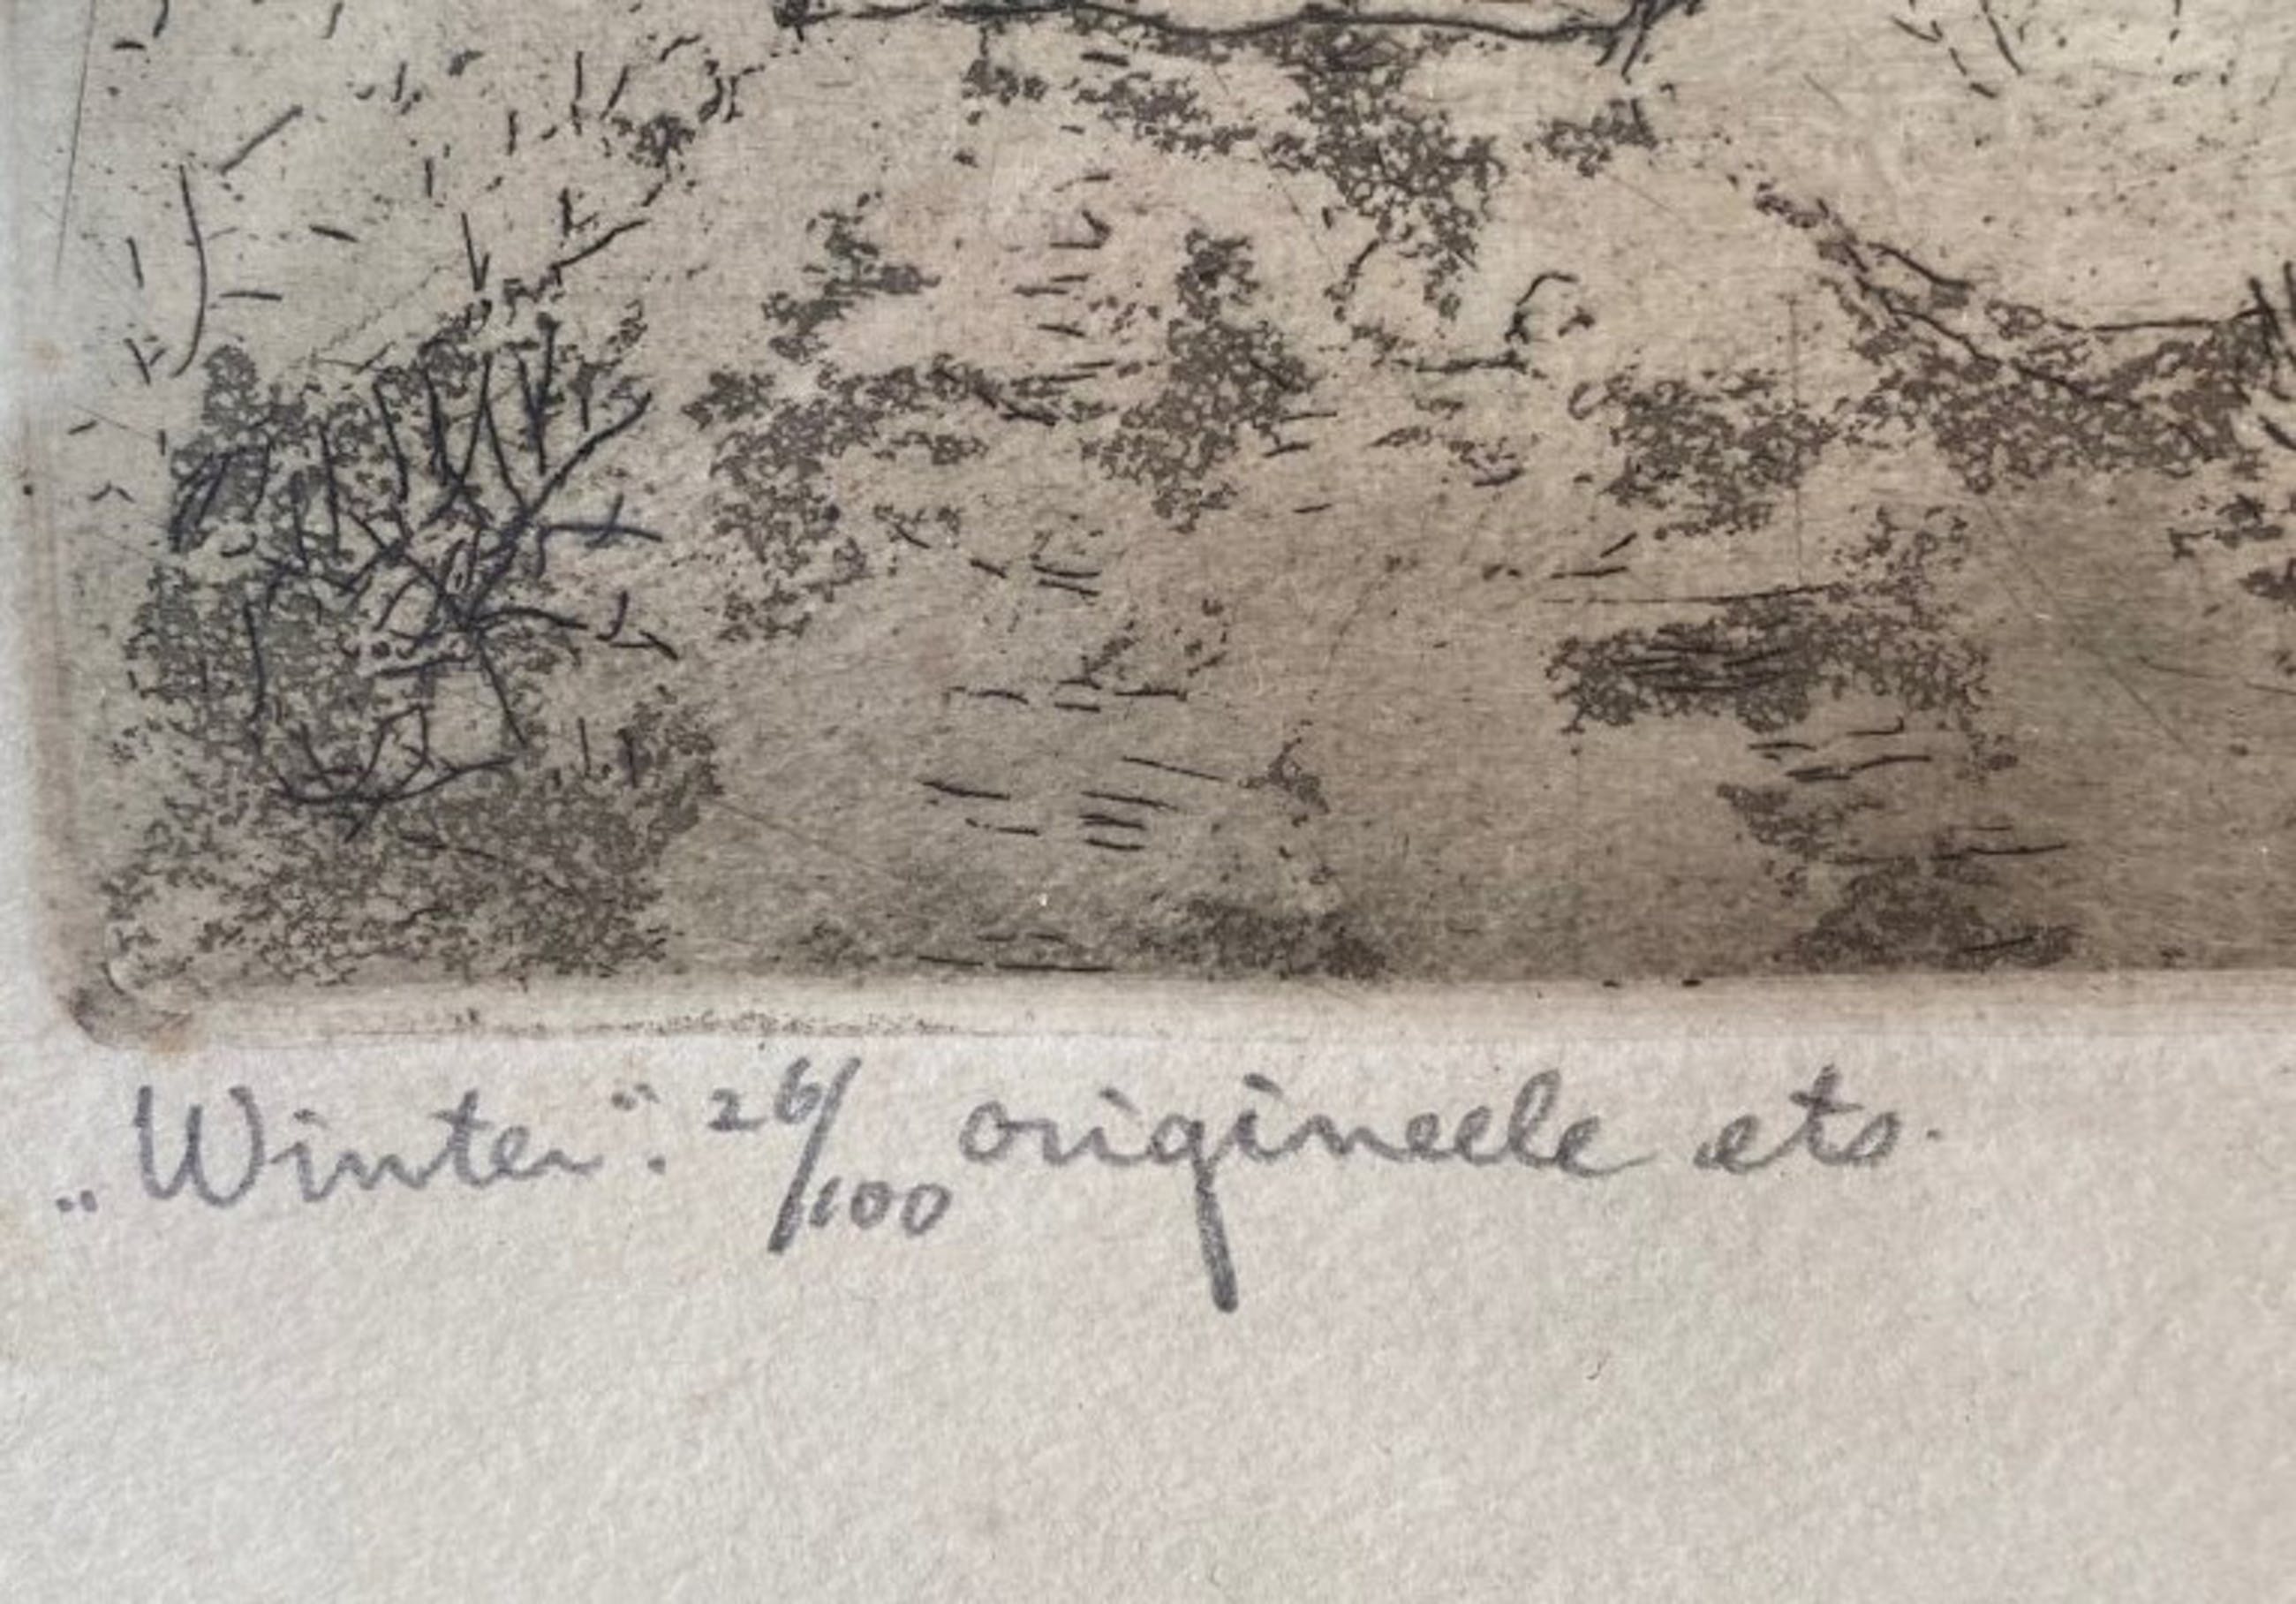 „Winter". 26/100 origineele ets.